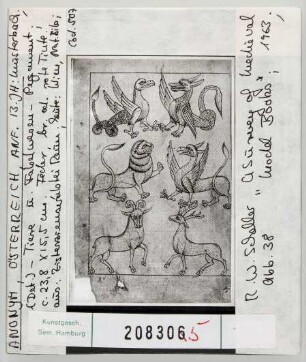 ANONYM, ÖSTERREICH, ANF. 13. JH: Musterbuch,
(Det.) - Tiere u. Fabelwesen - Pergament,
c. 23,8 x 15,5 cm, Feder br. od. rote Tinte;
aus: Zisterzienserabtei Wien, Nat. Bibl.
Cod. 507
R. W. Scheller "A Survey of Medieval
Model Books",
1963.
Abb. 38
Kunstgesch.
Sem. Hamburg
208306,5